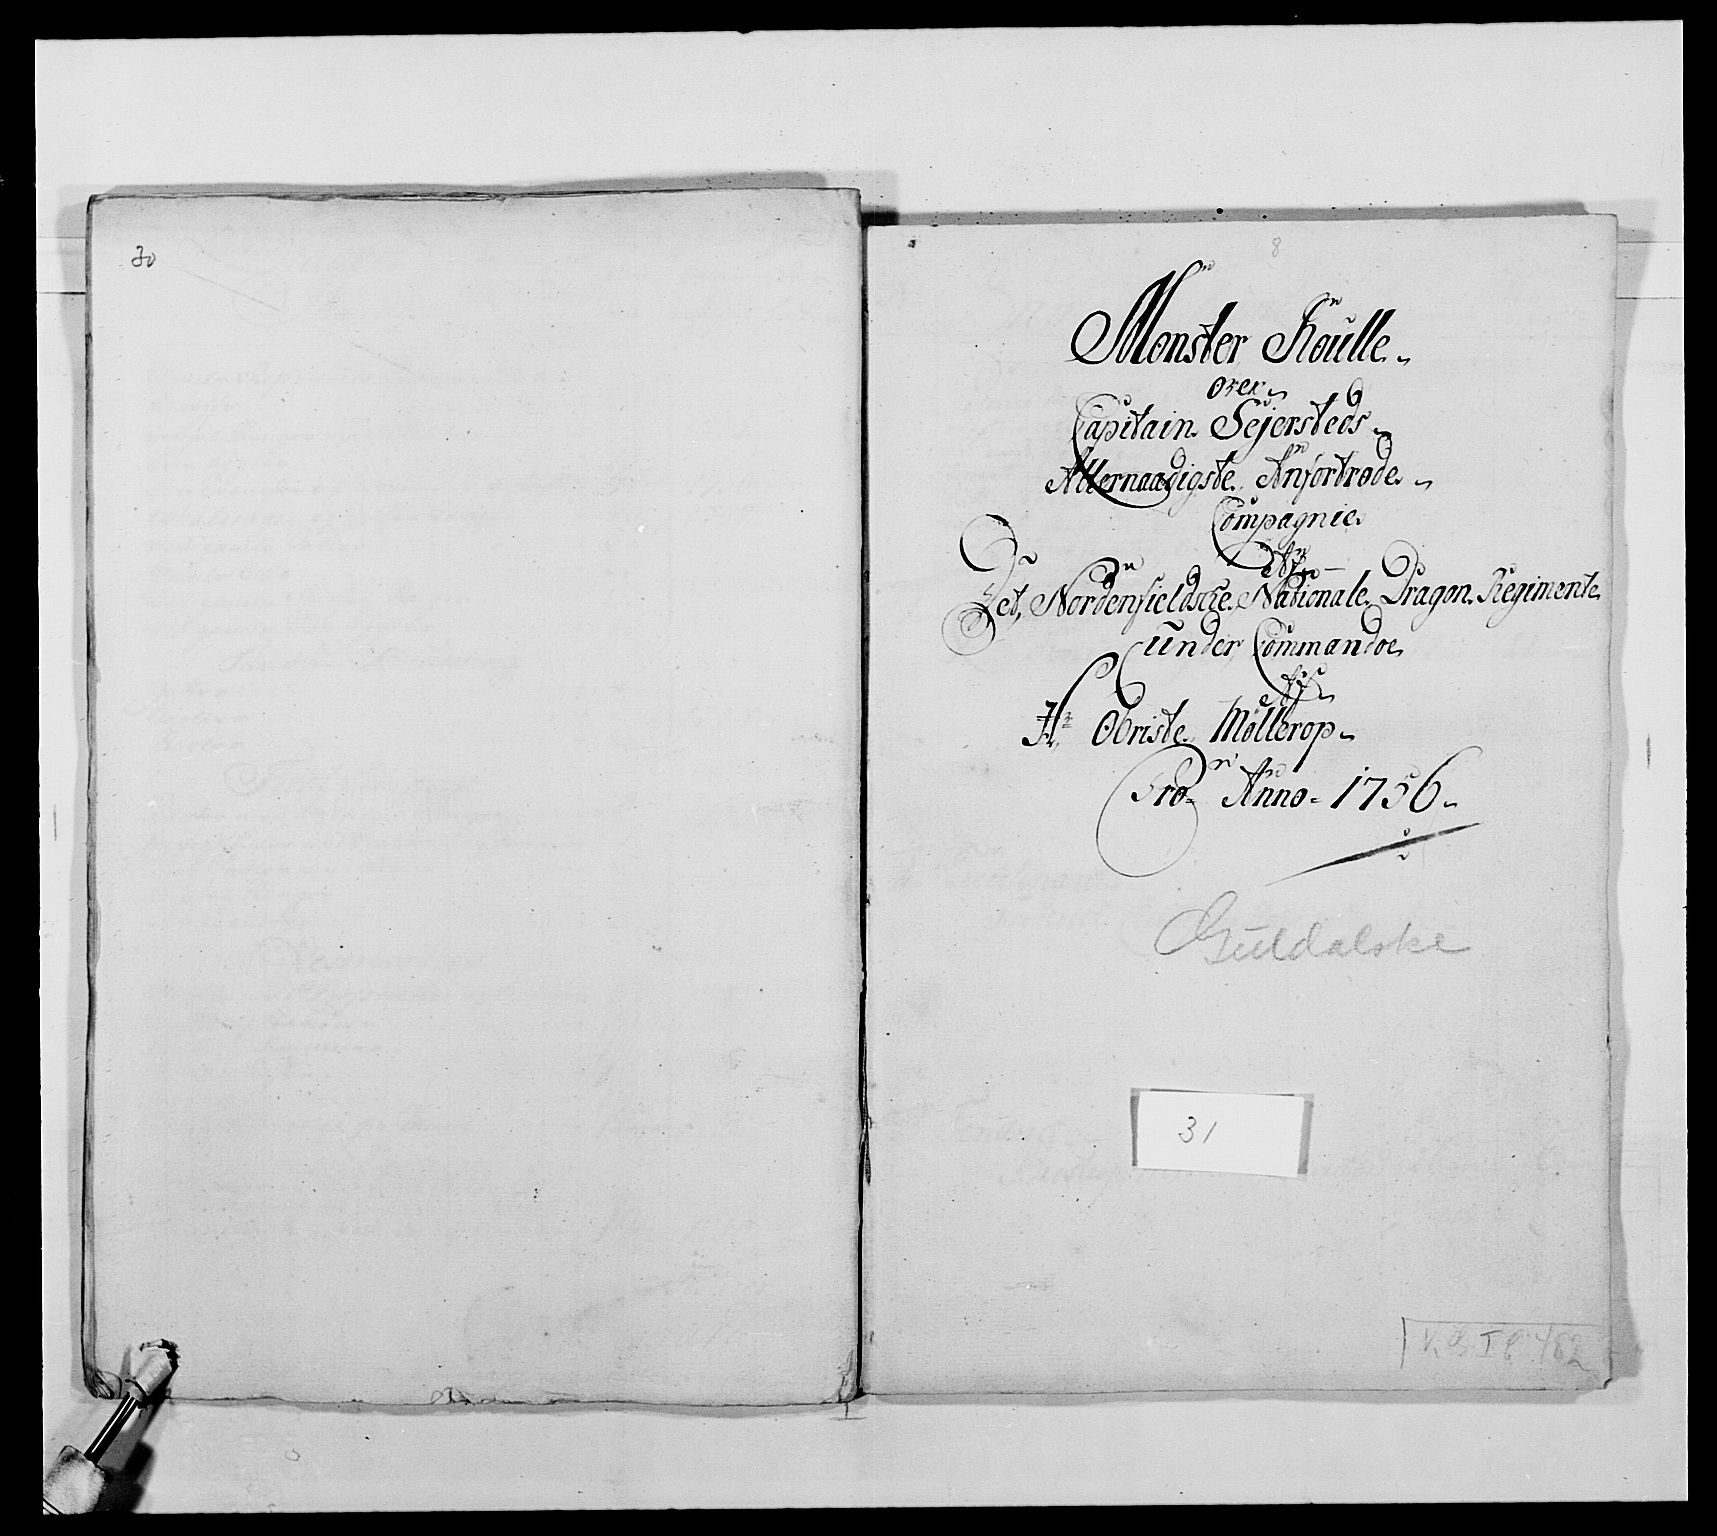 30
8
Monster Roulle
over
Capitain Sejersteds
Allernaadigste Anfortrode
Compagnie
Af
Det Nordenfieldske Nationale Dragon Regimente
under Commandoe
Af
Hr Obriste Møllerop
Pro Anno 1756
Guldalske
31